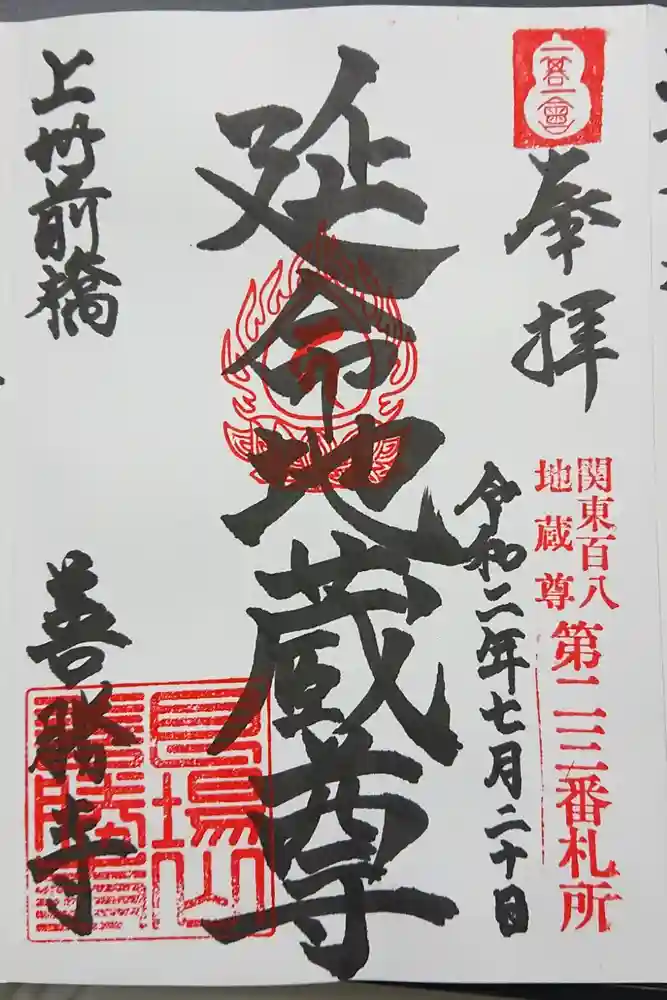 奉拝
関東百八
地蔵尊
第二三番札所
令和二年七月二十日
延命地蔵尊
上州前橋
善勝寺